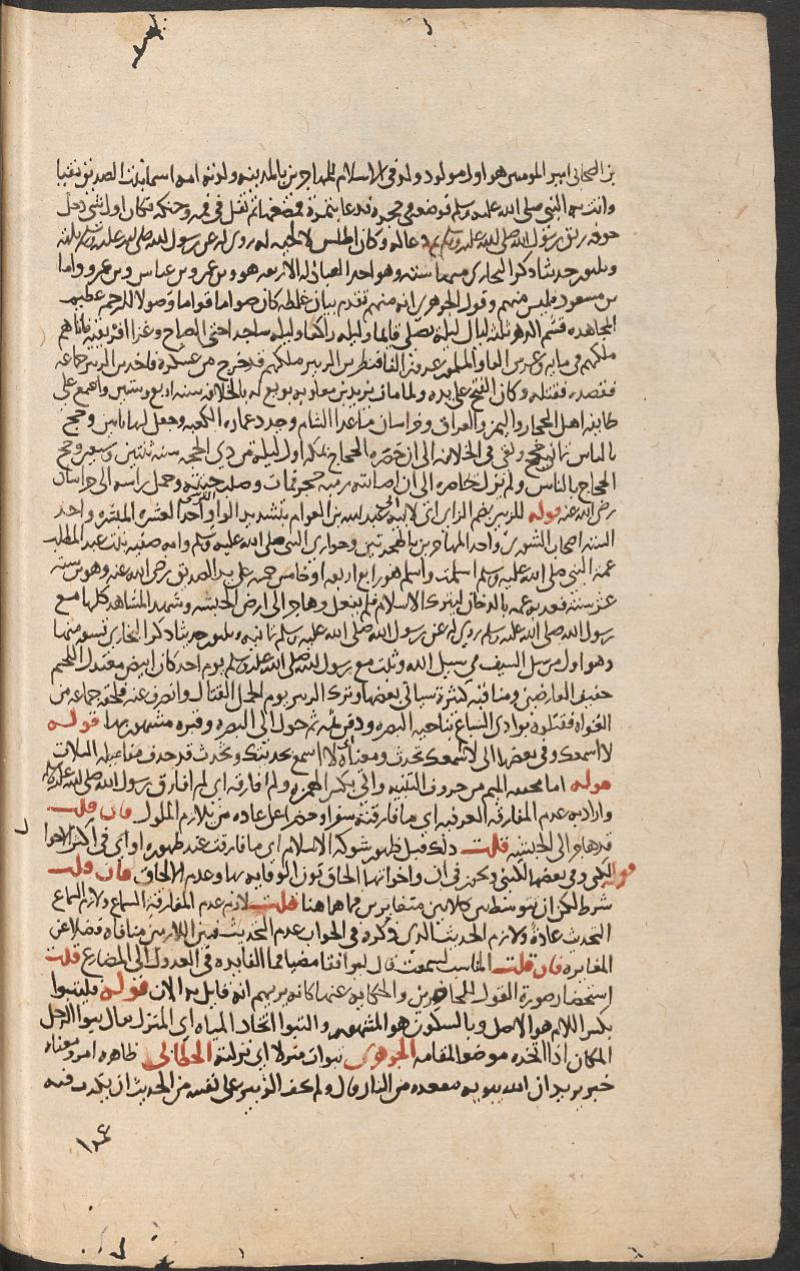 بن الصحابي امير المومنين هو اول مولود ولد في الاسلام للمهاجرين بالمدينة ولدته امه اسما بنت الصديق بقبا
واتت به النبي صلى الله عليه وسلم فوضعه في حجره فدعا بتمرة فمضغها ثم تفل في فيه وحنكه فكان اول شي دخل
جوفه ريق رسول الله صلى الله عليه وسلم ثم دعا له وكان اطلس لا لحية له روي له عن رسول الله صلى الله عليه وسلم ثلثة
وثلثون حديثا ذكر البخاري منها ستة وهو احد العبادلة الاربعة هو وبن عمر وبن عباس وبن عمرو واما
بن مسعود فليس منهم وقول الجوهري انه منهم تقدم بيان غلطه كان صواما قواما وصولا للرحم عظيم
المجاهدة قسم الدهر ثلث ليال ليلة يصلي قايما وليلة راكعا وليلة ساجدا حتى الصباح وغزا افريقية فاتاهم
ملكهم في ماية وعشرين الفا والمسلمون عشرون الفا فنظر بن الزبير ملكهم قد خرج من عسكره فاخذ بن الزبير جماعة
فقصده فقتله وكان الفتح على يده ولما مات يزيد بن معاوية بويع له بالخلافة سنة اربع وستين واجتمع على
طاعته اهل الحجاز واليمن والعراق وخراسان ما عدا الشام وجدد عمارة الكعبة وجعل لها بابين وحج
بالناس ثماني حجج وبقي في الخلافة الى ان حصره الحجاج بمكة اول ليلة من ذي الحجة سنة ثنتين وسبعين وحج
الحجاج بالناس ولم يزل محاصره الى ان اصابته رمية حجر فمات وصلب جثته وحمل راسه الى خراسان
رضي الله عنه قوله للزبير بضم الزاي اي لابيه ابي عبد الله بن العوام بتشديد الواو القرشي احد العشرة المبشرة واحد
الستة اصحاب الشورى واحد المهاجرين بالهجرتين وحواري النبي صلى الله عليه وسلم وامه صفية بنت عبد المطلب
عمة النبي صلى الله عليه وسلم اسلمت واسلم هو رابع اربعة او خامس خمسة على يد الصديق رضي الله عنه وهو بن ستة
عشر سنة فعذبه عمه بالدخان ليترك الاسلام فلم يفعل وهاجر الى ارض الحبشة وشهد المشاهد كلها مع
رسول الله صلى الله عليه وسلم روي له عن رسول الله صلى الله عليه وسلم ثمانية وثلثون حديثا ذكر البخاري تسعة منها
وهو اول من سل السيف في سبيل الله وثبت مع رسول الله صلى الله عليه وسلم يوم احد كان ابيض معتدل اللحم
خفيف العارضين ومناقبه كثيرة سياتي بعضها وترك الزبير يوم الجمل القتال وانصرف عنه فلحقه جماعة من
الغواة فقتلوه بوادي السباع بناحية البصرة ودفن ثمه ثم حول الى البصرة وقبره مشهور بها قوله
لا اسمعك وفي بعضها اني لا اسمعك تحدث ومعناه لا اسمع تحديثك وتحدث قد حذف مفاعيله الثلاث
قوله اما بخفة الميم من حروف التنبيه واني بكسر الهمزة ولم افارقه اي لم افارق رسول الله صلى الله عليه وسلم
واراد به عدم المفارقة العرفية اي ما فارقته سفرا وحضرا على عادة من يلازم الملوك فان قلت
قد هاجر الى الحبشة قلت ذلك قبل ظهور شوكة الاسلام اي ما فارقت عند ظهوره او اي في اكثر الاحوال
قوله لكني وفي بعضها لكنني ويجوز في ان واخواتها الحاق نون الوقاية بها وعدم الالحاق فان قلت
شرط لكن ان يتوسط بين كلامين متغايرين فما هاهنا قلت لازم عدم المفارقة السماع ولازم السماع
التحدث عادة ولازم الحديث الذي ذكره في الجواب عدم التحديث فبين اللازمين منافاة فضلا عن
المغايرة فان قلت المناسب لسمعت قال ليتوافقا مضيا فما الفايدة في العدول الى المضارع قلت
استحضار صورة القول للحاضرين والحكاية عنها كانه يريهم انه قايل به الان قوله فليتبوا
بكسر اللام هو الاصل وبالسكون هو المشهور والتبوا اتخاذ المباة اي المنزل يقال تبوا الرجل
المكان اذا اتخذه موضعا لمقامه الجوهري تبوات منزلا اي نزلته الخطابي ظاهره امر ومعناه
خبر يريد ان الله يبويه مقعده من النار قال ولم يخف الزبير على نفسه من الحديث ان يكذب فيه